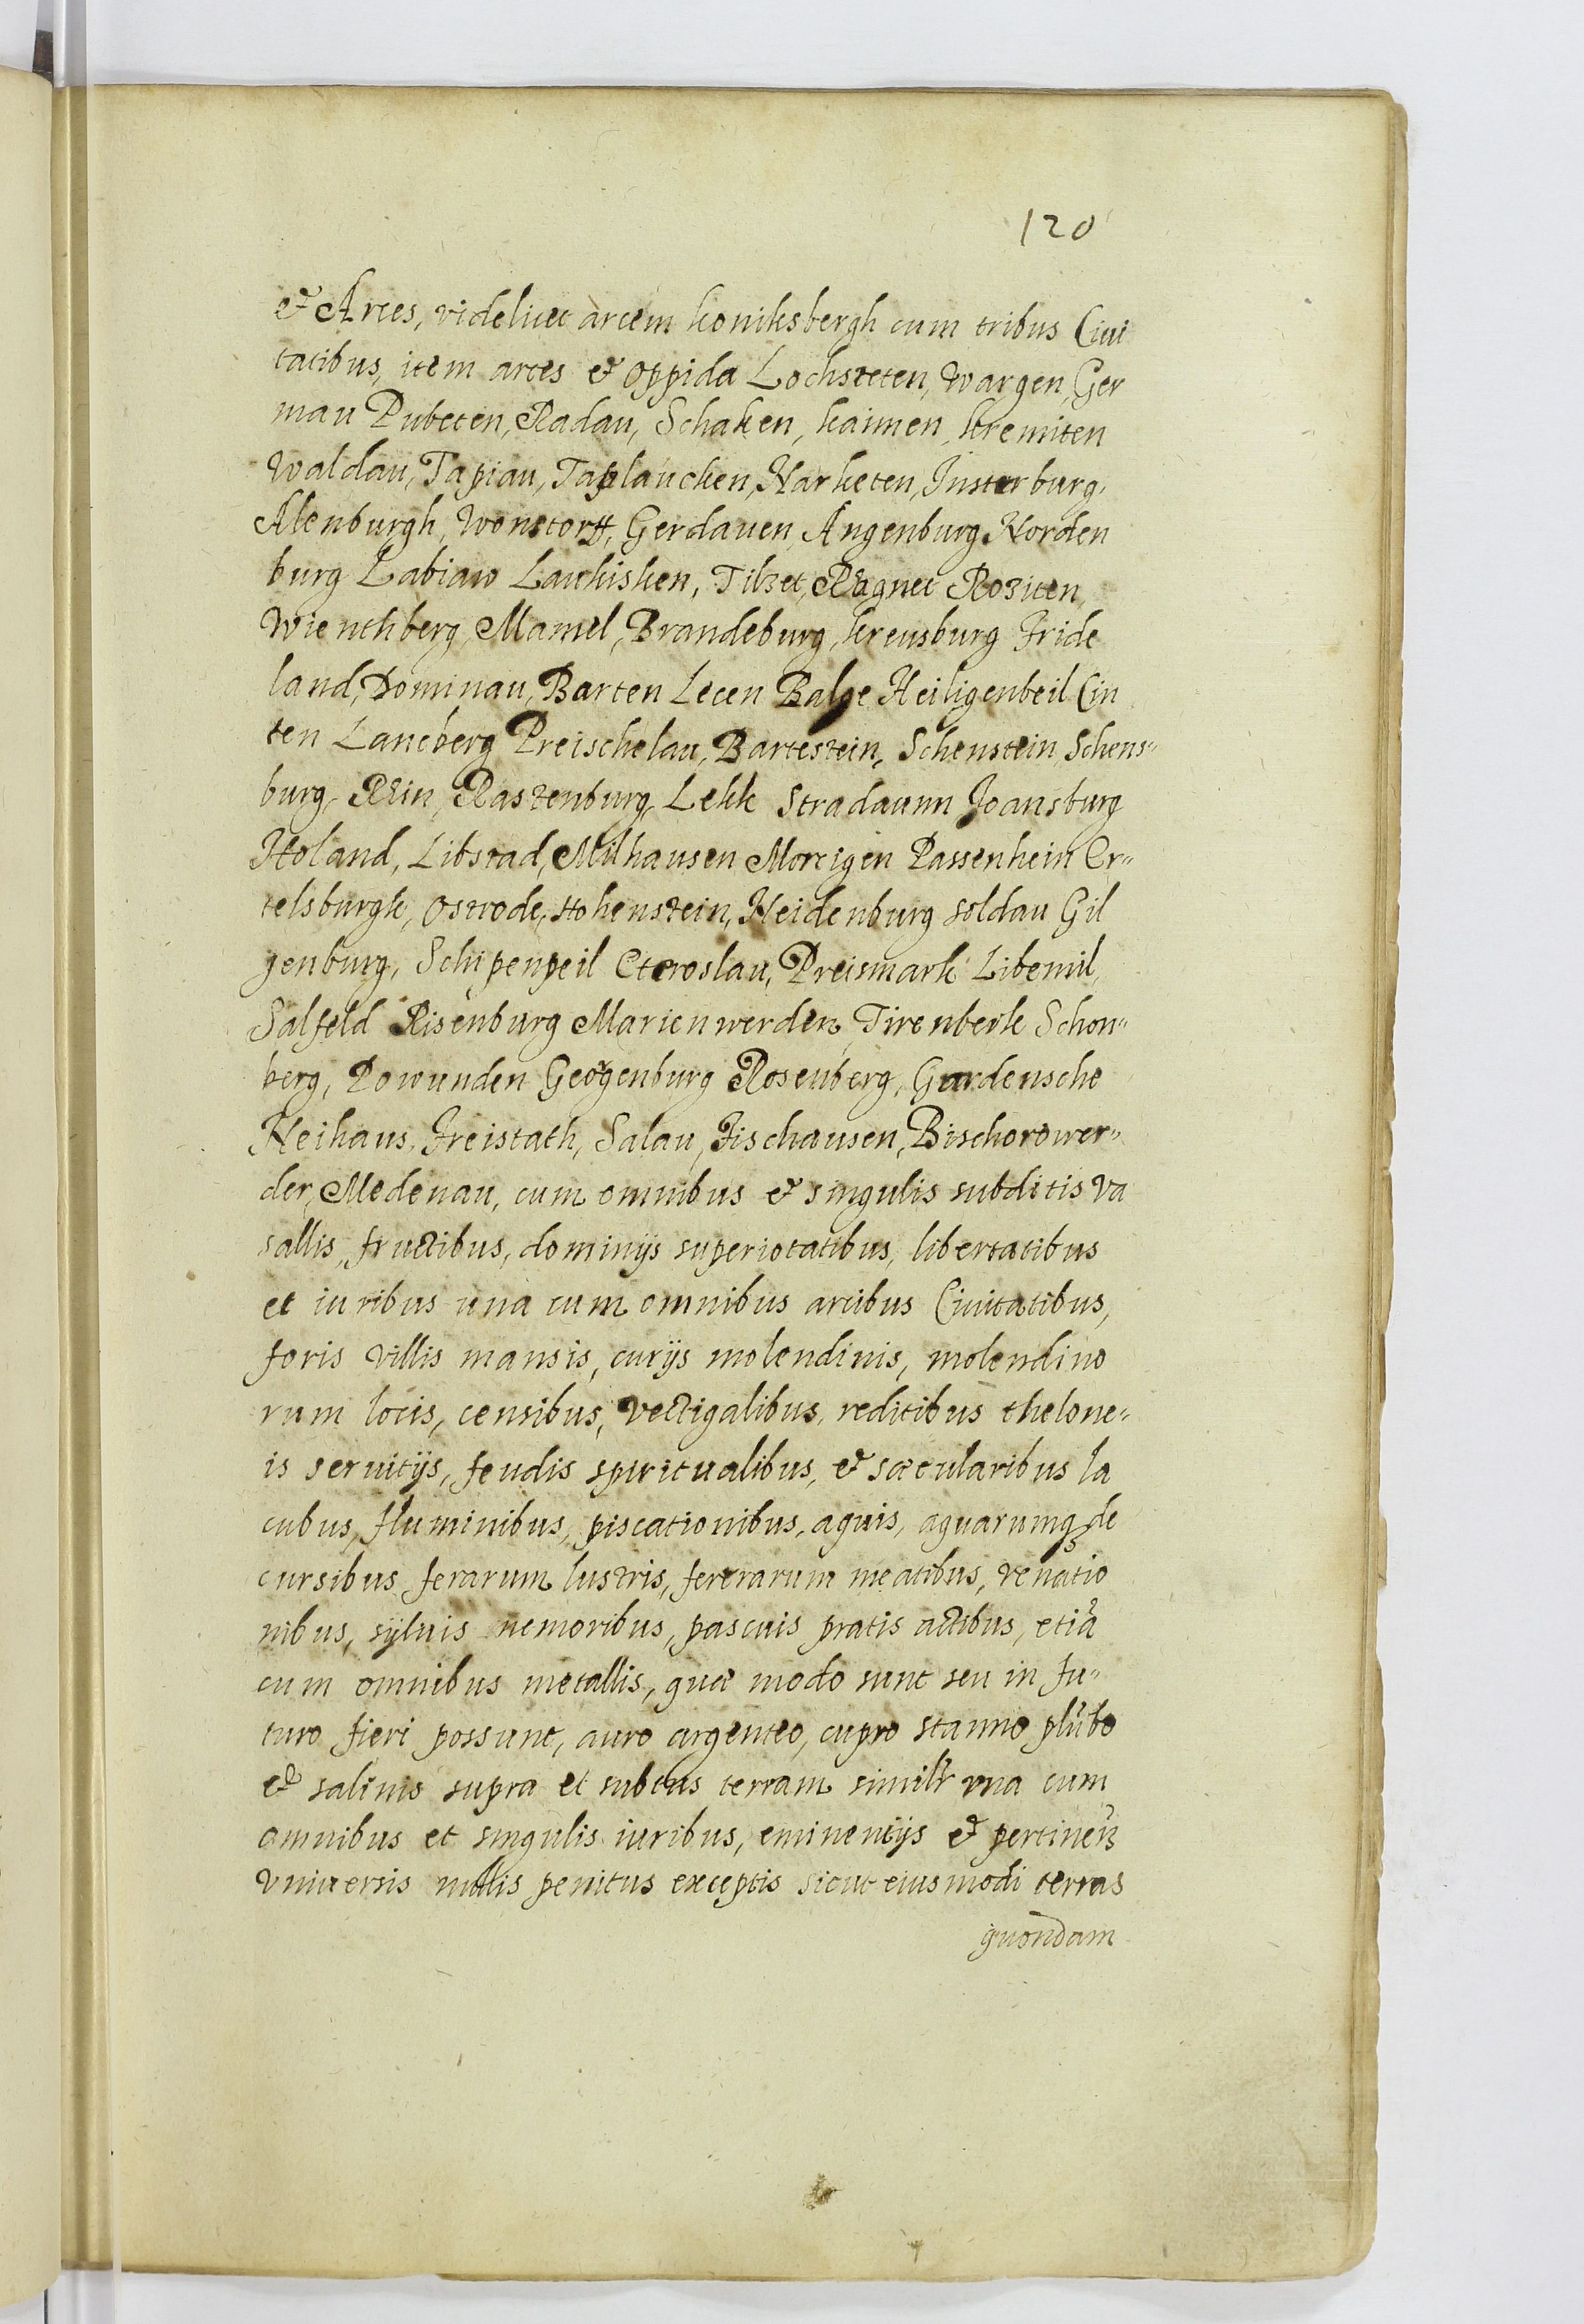 120
et Arces, videlicet arcem Koniksbergh cum tribus Ciui
tatibus, item arces et oppida Lochsteten, Wargen, Ger
mau Pubeten, Radau, Schaken, Kaimen, Kremiten
Waldau, Tapiau, Taplaucken, Narketen, Insterburg,
Alenburgh, Wonstorff, Gerdauen, Angenburg Norden
burg Labiaw Laukisken, Tilzet, Ragnet Roziten,
Wienthberg, Mamel, Brandeburg, Kreusburg Fride
land, Dominau, Barten Lecen Balge Heiligenbeil Cin
ten Lancberg Preischelau, Bartestein, Schenstein, Schens"
burg, Rein, Rastenburg, Lekk Stradaunn Joansburg
Holand, Libstad, Milhausen Moreigen Passenhein Or"
telsburgk, Ostrode, Hohenstein, Neidenburg Soldau Gil
genburg, Schipenpeil Eteroslau, Preismark Libemil,
Salfeld Risenburg Marienwerden, Tirenberk Schon"
berg, Powunden Georgenburg Rosenberg, Gardensche
Neihaus, Freistath, Salau, Fischausen, Bischorower"
der, Medenau, cum omnibus et singulis subditis Va
sallis, fructibus, dominijs superiotatibus, libertatibus
et iuribus una cum omnibus arcibus Ciuitatibus,
foris villis mansis, curijs molendinis, molendino
rum locis, censibus, vectigalibus, reditibus thelone"
is seruitijs, feudis spiritualibus, et sæcularibus la
cubus, fluminibus, piscationibus, aquis, aquarumq₃ de
cursibus ferarum lustris, fererarum meatibus, venatio
nibus, syluis nemoribus, pascuis pratis actibus, etiã
cum omnibus metallis, quæ modo sunt seu in fu"
turo fieri possunt, auro argenteo, cupro stanno plũbo
et salinis supra et subtus terram similr vna cum
omnibus et singulis iuribus, eminentijs et pertinen₃
vniuersis nullis penitus exceptis sicut eiusmodi terras
quondam